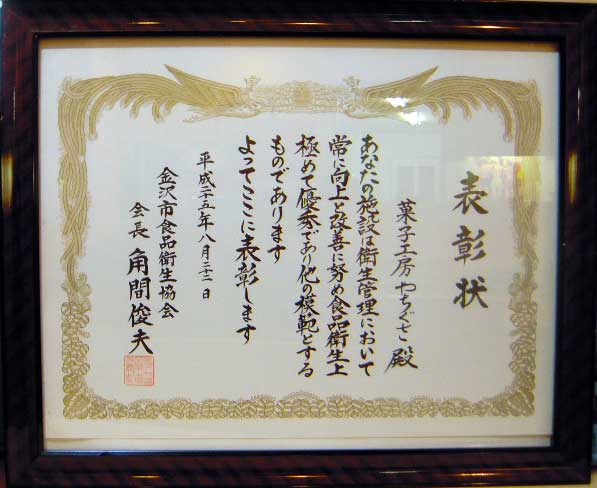 表彰状
菓子工房 やちぐさ 殿
あなたの施設は衛生管理において
常に向上と改善に努め食品衛生上
極めて優秀であり他の模範とする
ものであります
よってここに表彰します
平成二三年八月二十二日
金沢市食品衛生協会
会長 角間俊夫